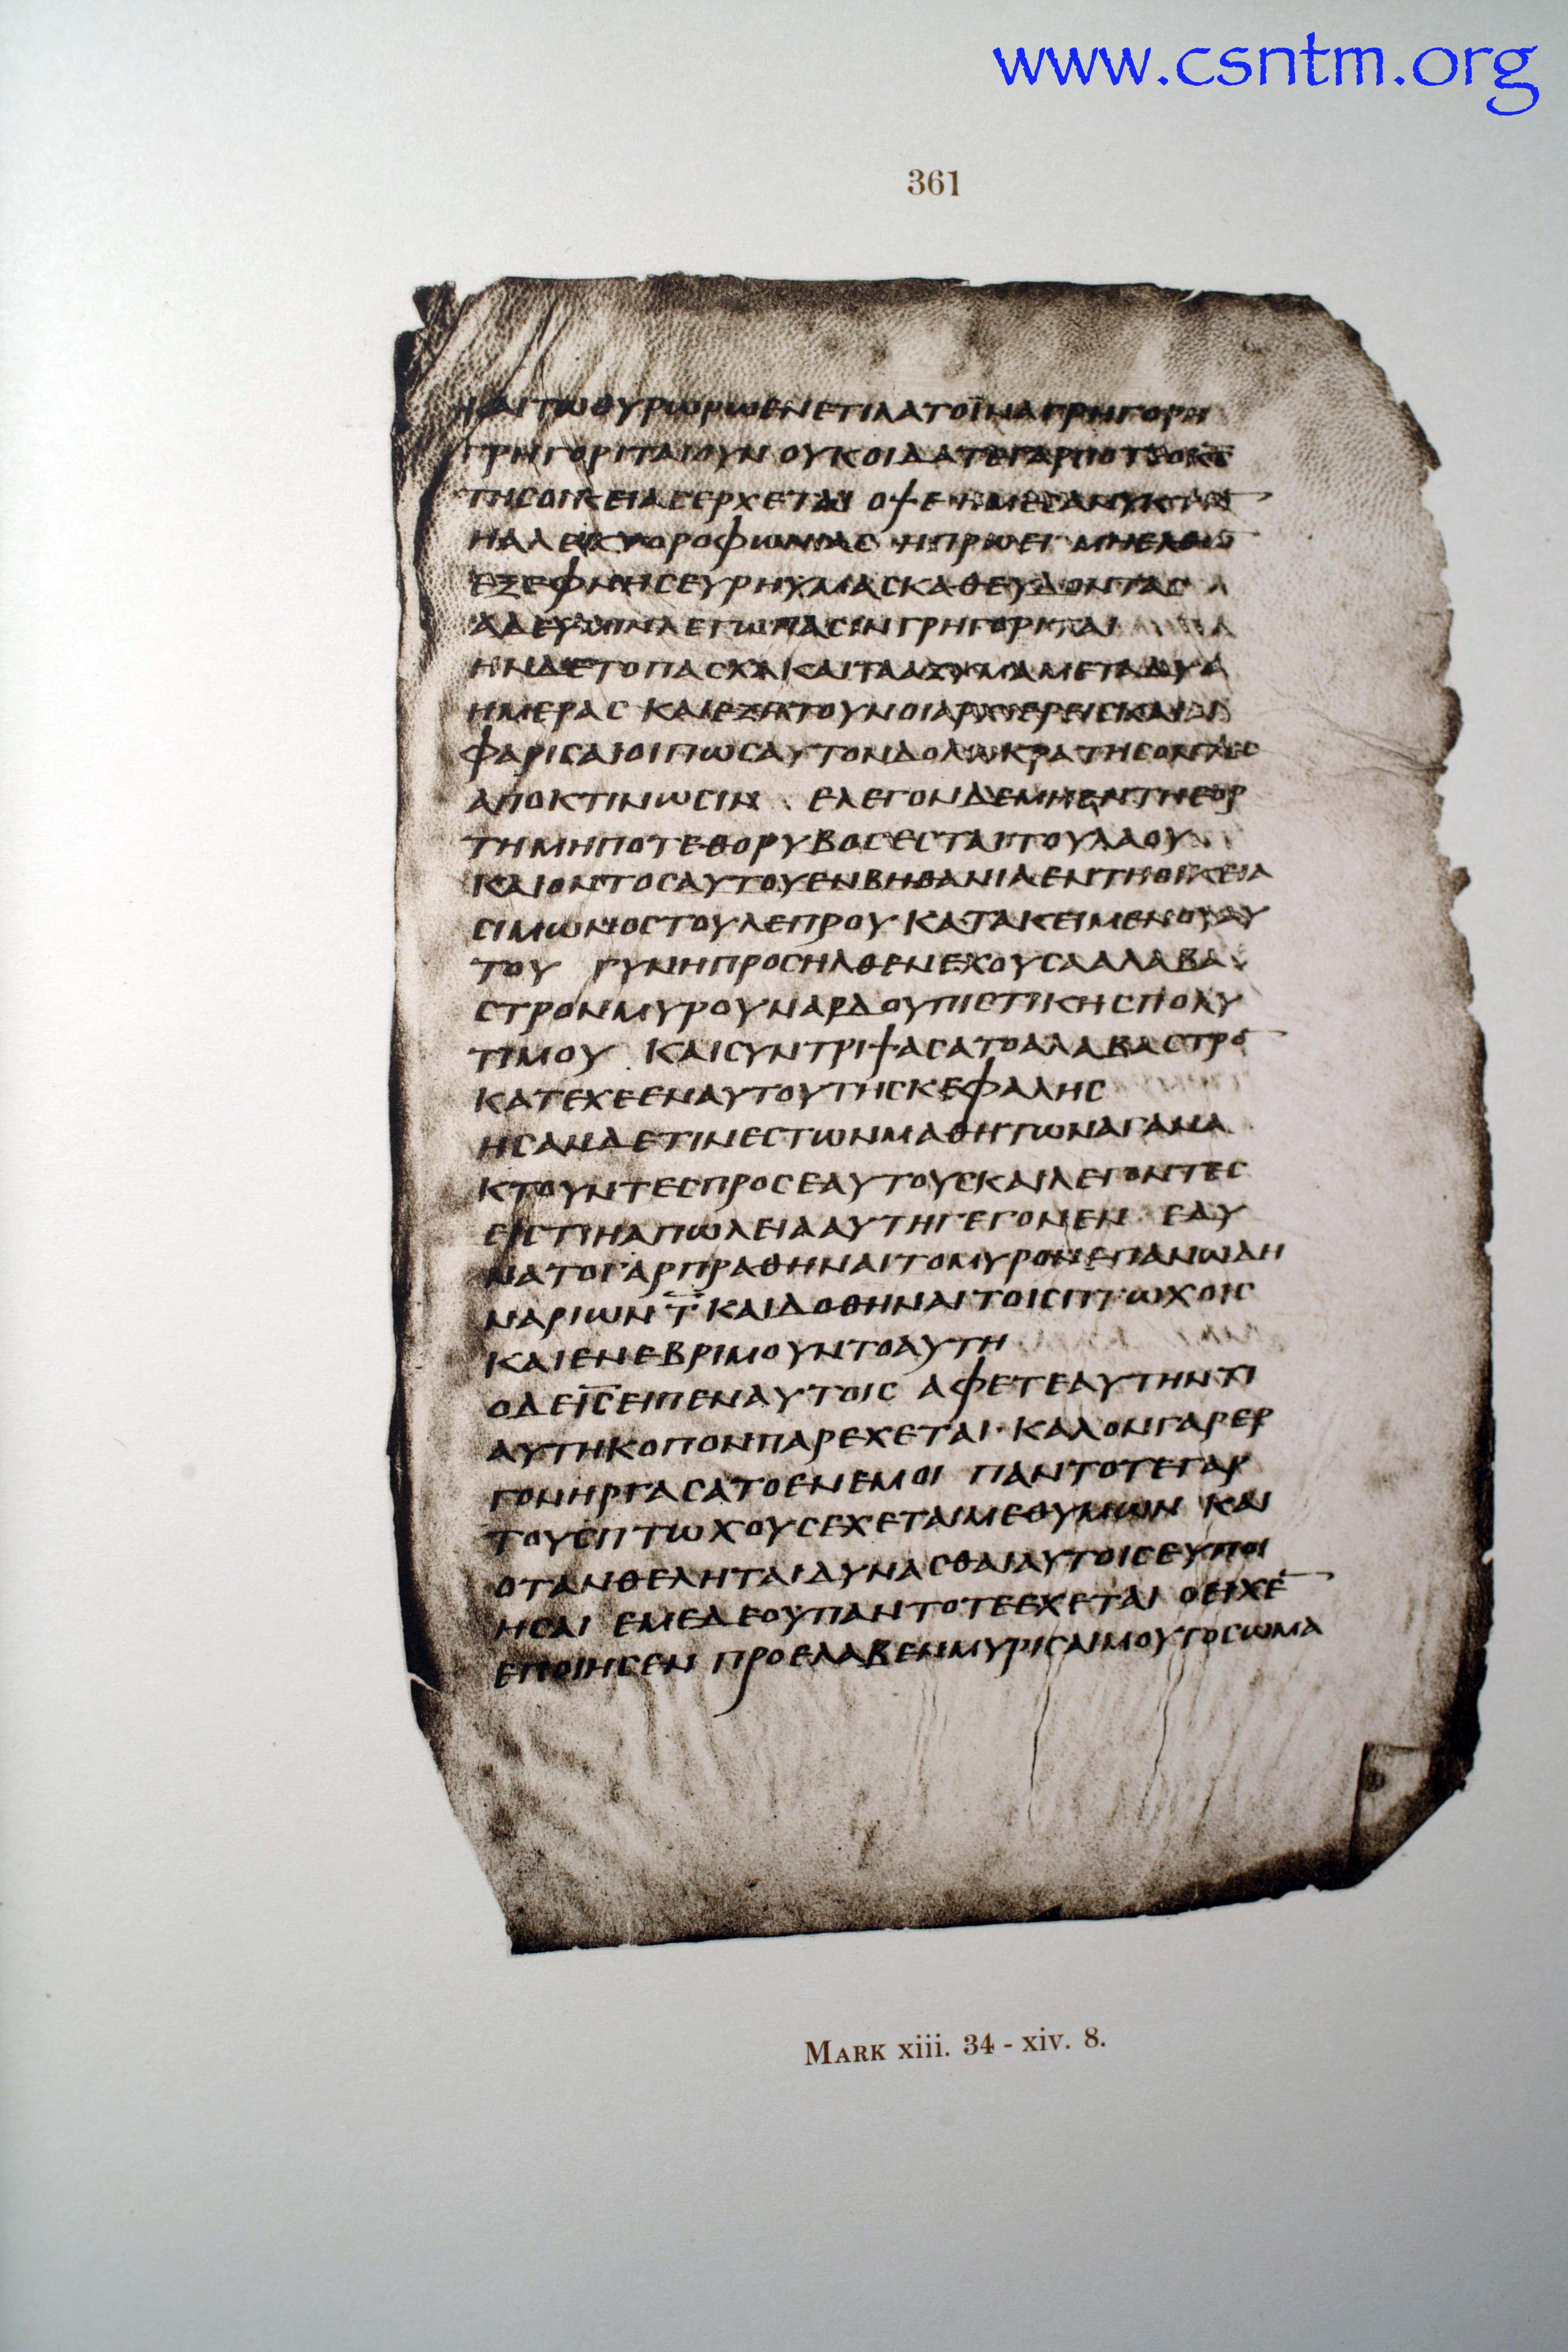 www.csntm.org
361
ΚΑΙΤΩΘΥΡΩΡΩΕΝΕΤΙΛΑΤΟΪΝΑΓΡΗΓΟΡΗ
ΓΡΗΓΟΡΙΤΑΙΟΥΝ ΟΥΚΟΙΔΑΤΕΓΑΡΠΟΤΕΟΚ̅Ϲ̅
ΤΗϹΟΙΚΕΙΑϹΕΡΧΕΤΑΙ ΟΨΕ ΗΜΕϹΑΝΥΚΤΙΟ̅
ΗΑΛΕΚΤΟΡΟΦΩΝΙΑϹ ΗΠΡΩΕΙ ΜΗΕΛΘΩ̅
ΕΞΕΦΝΗϹΕΥΡΗΥΜΑϹΚΑΘΕΥΔΟΝΤΑϹ
ΛΕΓΩΠΑϹΙΝΓΡΗΓΟΡΙΤΑΙ
ΗΝΔΕΤΟΠΑϹΧΑΚΑΙΤΑΑΖΥΜΑΜΕΤΑΔΥΟ
ΗΜΕΡΑϹ ΚΑΙΕΖΗΤΟΥΝΟΙΑΡΧΙΕΡΕΙϹΚΑΙΟΙ
ΦΑΡΙϹΑΙΟΙΠΩϹΑΥΤΟΝΔΟΛΩΚΡΑΤΗϹΟΝΤΕϹ
ΑΠΟΚΤΙΝΩϹΙΝ ΕΛΕΓΟΝΔΕΜΗΕΝΤΗΕΟΡ
ΤΗΜΗΠΟΤΕΘΟΡΥΒΟϹΕϹΤΑΙΤΟΥΛΑΟΥ
ΚΑΙΟΝΤΟϹΑΥΤΟΥΕΝΒΗΘΑΝΙΑΕΝΤΗΟΙΚΕΙΑ
ϹΙΜΩΝΟϹΤΟΥΛΕΠΡΟΥ ΚΑΤΑΚΕΙΜΕΝΟΥΑΥ
ΤΟΥ ΓΥΝΗΠΡΟϹΗΛΘΕΝΕΧΟΥϹΑΑΛΑΒΑ
ϹΤΡΟΝΜΥΡΟΥΝΑΡΔΟΥΠΙϹΤΙΚΗϹΠΟΛΥ
ΤΙΜΟΥ ΚΑΙϹΥΝΤΡΙΨΑϹΑΤΟΑΛΑΒΑϹΤΡΟ̅
ΚΑΤΕΧΕΕΝΑΥΤΟΥΤΗϹΚΕΦΑΛΗϹ
ΗϹΑΝΔΕΤΙΝΕϹΤΩΝΜΑΘΗΤΩΝΑΓΑΝΑ
ΚΤΟΥΝΤΕϹΠΡΟϹΕΑΥΤΟΥϹΚΑΙΛΕΓΟΝΤΕϹ
ΕΙϹΤΙΗΑΠΩΛΕΙΑΑΥΤΗΓΕΓΟΝΕΝ ΕΔΥ
ΝΑΤΟΓΑΡΠΡΑΘΗΝΑΙΤΟΜΥΡΟΝΕΠΑΝΩΔΗ
ΝΑΡΙΩΝ Τ̅ ΚΑΙΔΟΘΗΝΑΙΤΟΙϹΠΤΩΧΟΙϹ
ΚΑΙΕΝΕΒΡΙΜΟΥΝΤΟΑΥΤΗ
ΟΔΕΙ̅Ϲ̅ΕΙΠΕΝΑΥΤΟΙϹ ΑΦΕΤΕΑΥΤΗΝΤΙ
ΑΥΤΗΚΟΠΟΝΠΑΡΕΧΕΤΑΙ· ΚΑΛΟΝΓΑΡΕΡ
ΓΟΝΗΡΓΑϹΑΤΟΕΝΕΜΟΙ ΠΑΝΤΟΤΕΓΑΡ
ΤΟΥϹΠΤΩΧΟΥϹΕΧΕΤΑΙΜΕΘΥΜΩΝ ΚΑΙ
ΟΤΑΝΘΕΛΗΤΑΙΔΥΝΑϹΘΑΙΑΥΤΟΙϹΕΥΠΟΙ
ΗϹΑΙ ΕΜΕΔΕΟΥΠΑΝΤΟΤΕΕΧΕΤΑΙ ΟΕΙΧΕ̅
ΕΠΟΙΗϹΕΝ ΠΡΟΕΛΑΒΕΝΜΥΡΙϹΑΙΜΟΥΤΟϹΩΜΑ
MARK xiii. 34 - xiv. 8.